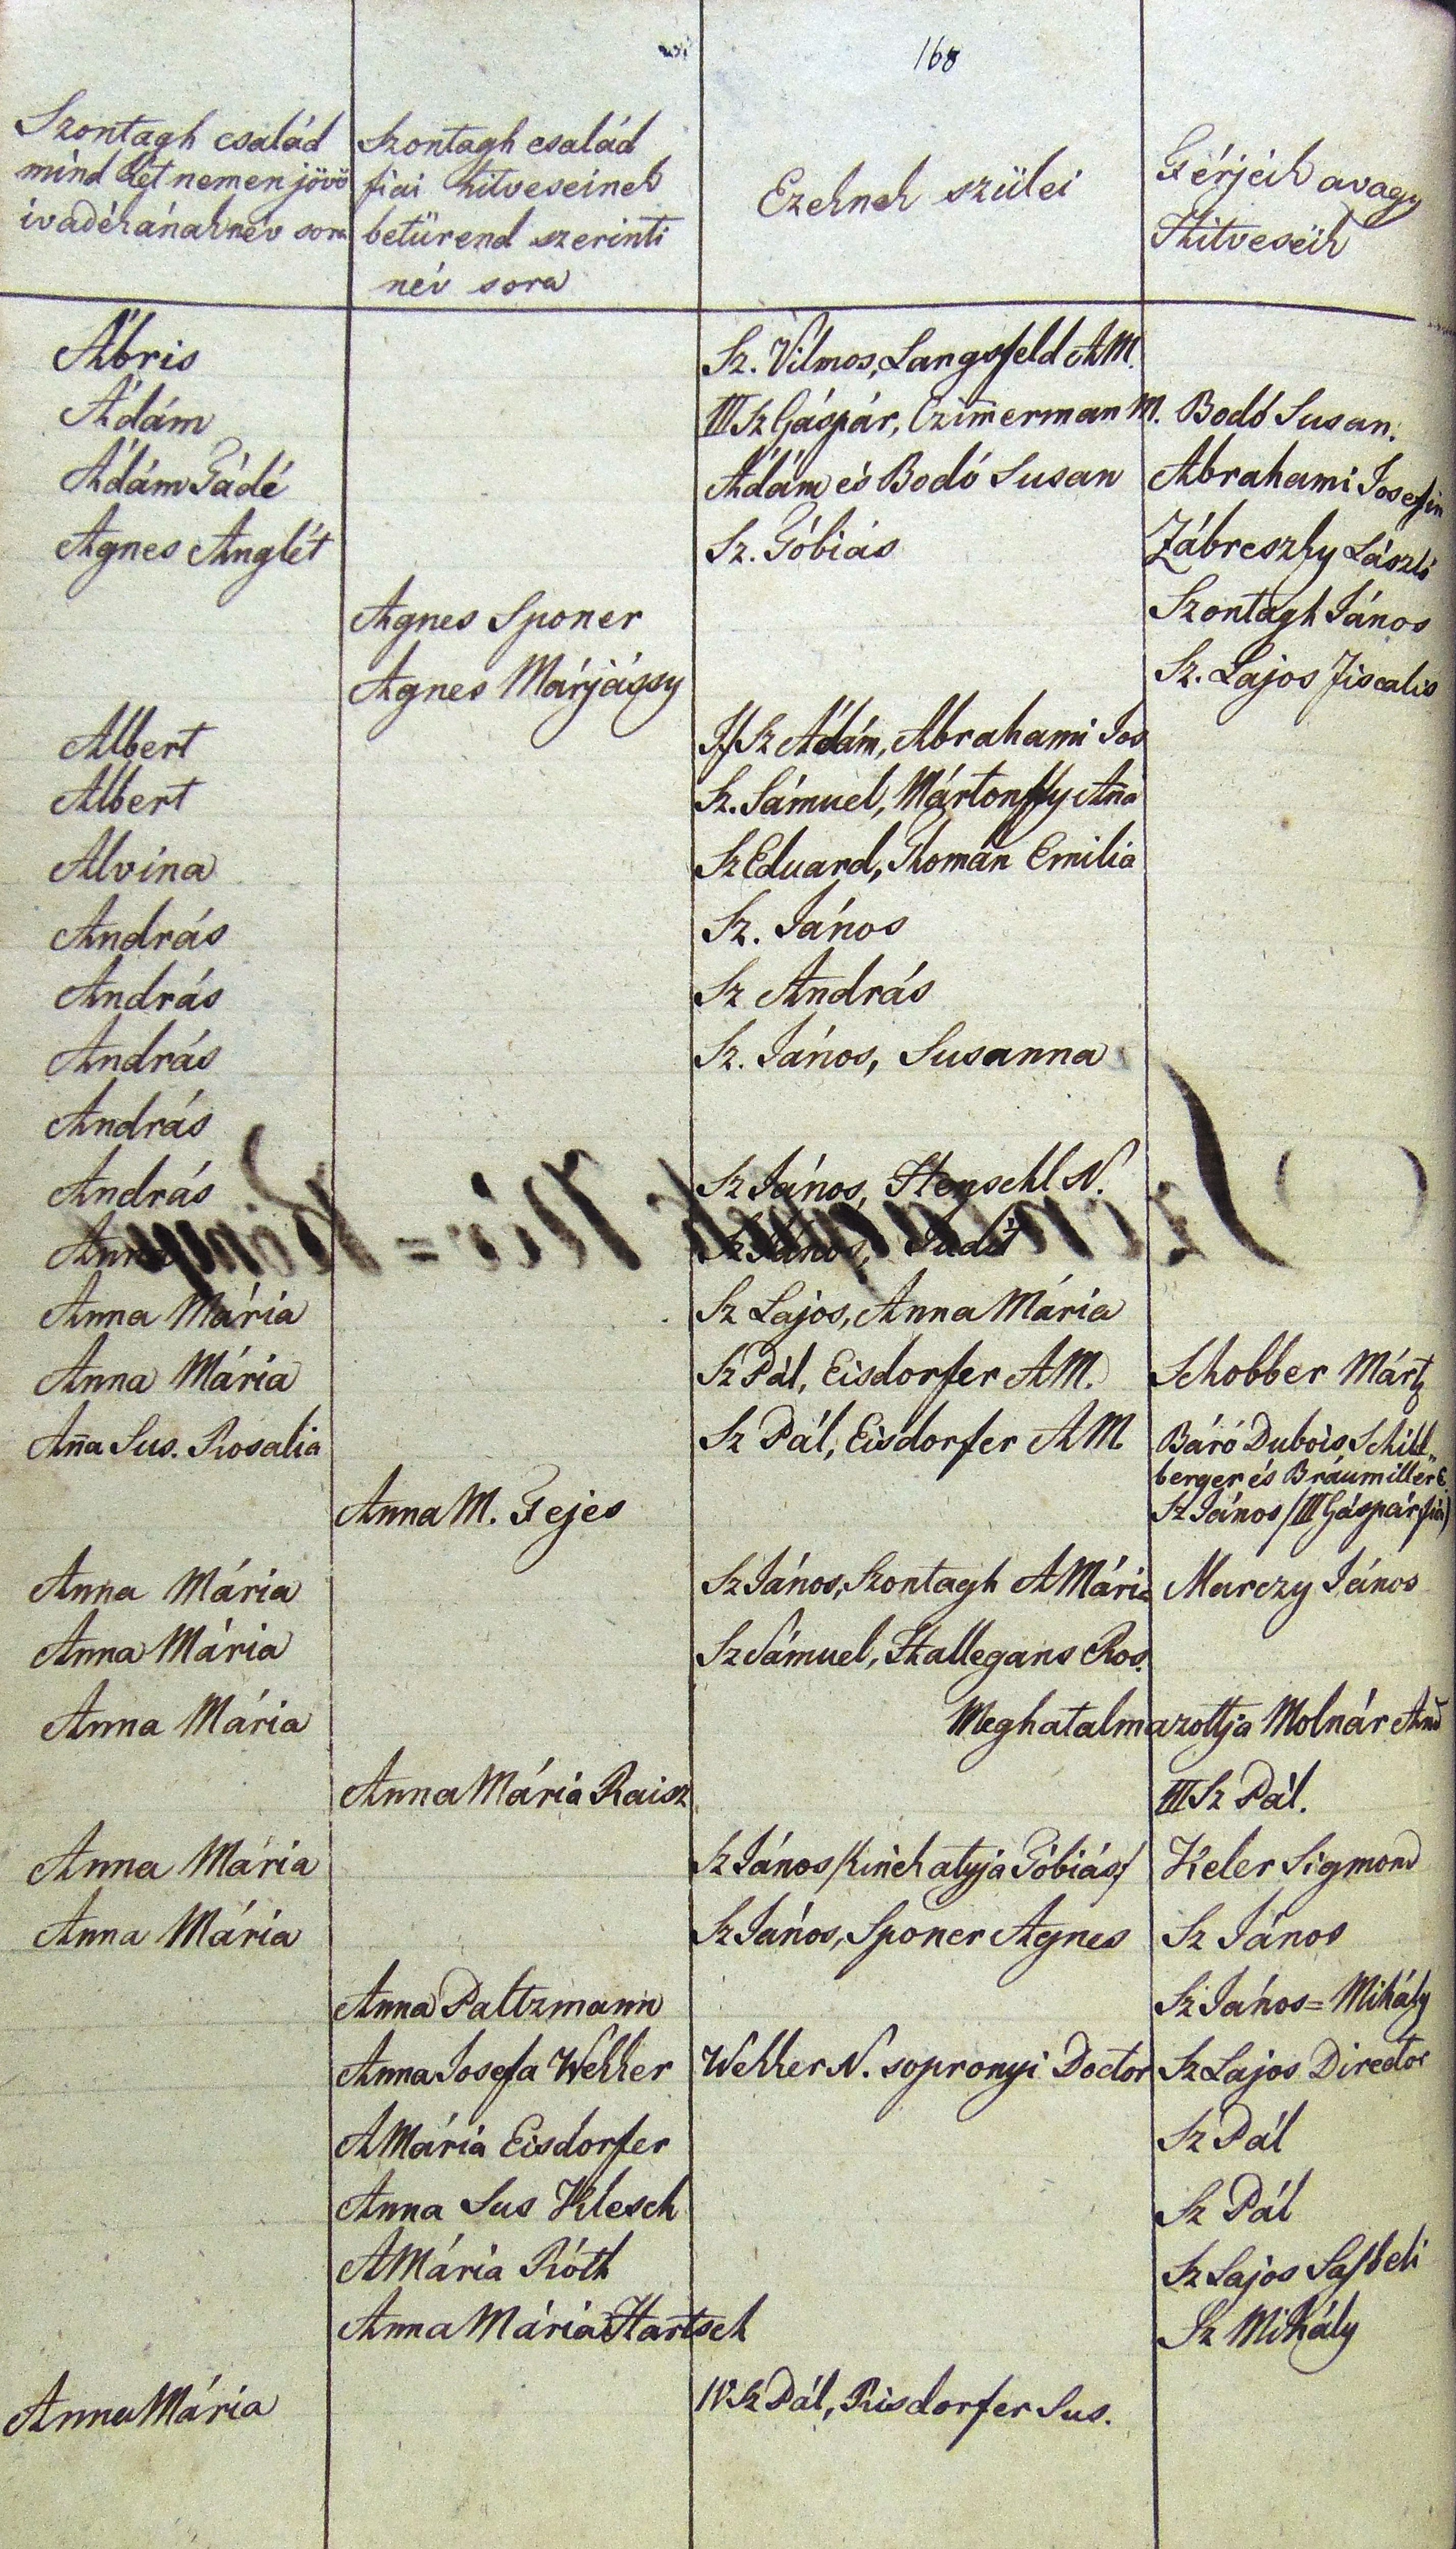 168
Szontagh család
mind két nemen jövö
ivadékának név sora
Szontagh család
fiai hitveseinek
betürend szerinti
név sora
Ezeknek szülei
Férjeik avagy
Hitveseik
Ábris Sz. Vilmos, Langsfeld AM.
Ádám III Sz Gáspár, Czim̄erman M. Bodó Susan.
Ádám Gádé Ádám és Bodó Susan Abrahami Josefin
Agnes Anglét Sz. Tóbiás Zábreszky László
Agnes Sponer Szontagh János
Agnes Márjássy Sz. Lajos Fiscalis
Albert If Sz Ádám, Abrahami Jos
Albert Sz. Sámuel, Mártonffy An̄a
Alvina Sz Eduard, Thomán Emilia
András Sz. János
András Sz András
András Sz. János, Susanna
András
András Sz János, Henschl N.
Anna Sz János, Judit
Szontaghok Név = Könyve
Anna Mária Sz Lajos, Anna Mária
Anna Mária Sz Pál, Eisdorfer AM. Schobber Márt
An̄a Sus. Rosalia Sz Pál, Eisdorfer AM Báró Dubois, Schill„
berger és Bräumiller E.
Anna M. Fejes Sz János /III Gáspár fia/
Anna Mária Sz János, Szontagh AMária Marczy János
Anna Mária Sz Sámuel, Hallegans Ros.
Anna Mária Meghatalmazottja Molnár And
Anna Mária Raisz III Sz Pál.
Anna Mária Sz János /kinek atyja Tóbiás/ Keler Sigmond
Anna Mária Sz János, Sponer Agnes Sz János
Anna Paltzmann Sz János = Mihály
Anna Josefa Wekker Wekker N. sopronyi Doctor Sz Lajos Director
AMária Eisdorfer Sz Pál
Anna Sus Klesch Sz Pál
AMária Róth Sz Lajos
Anna Mária Hartsch Sz Mihály
Anna Mária IV Sz Pál, Risdorfer Sus.